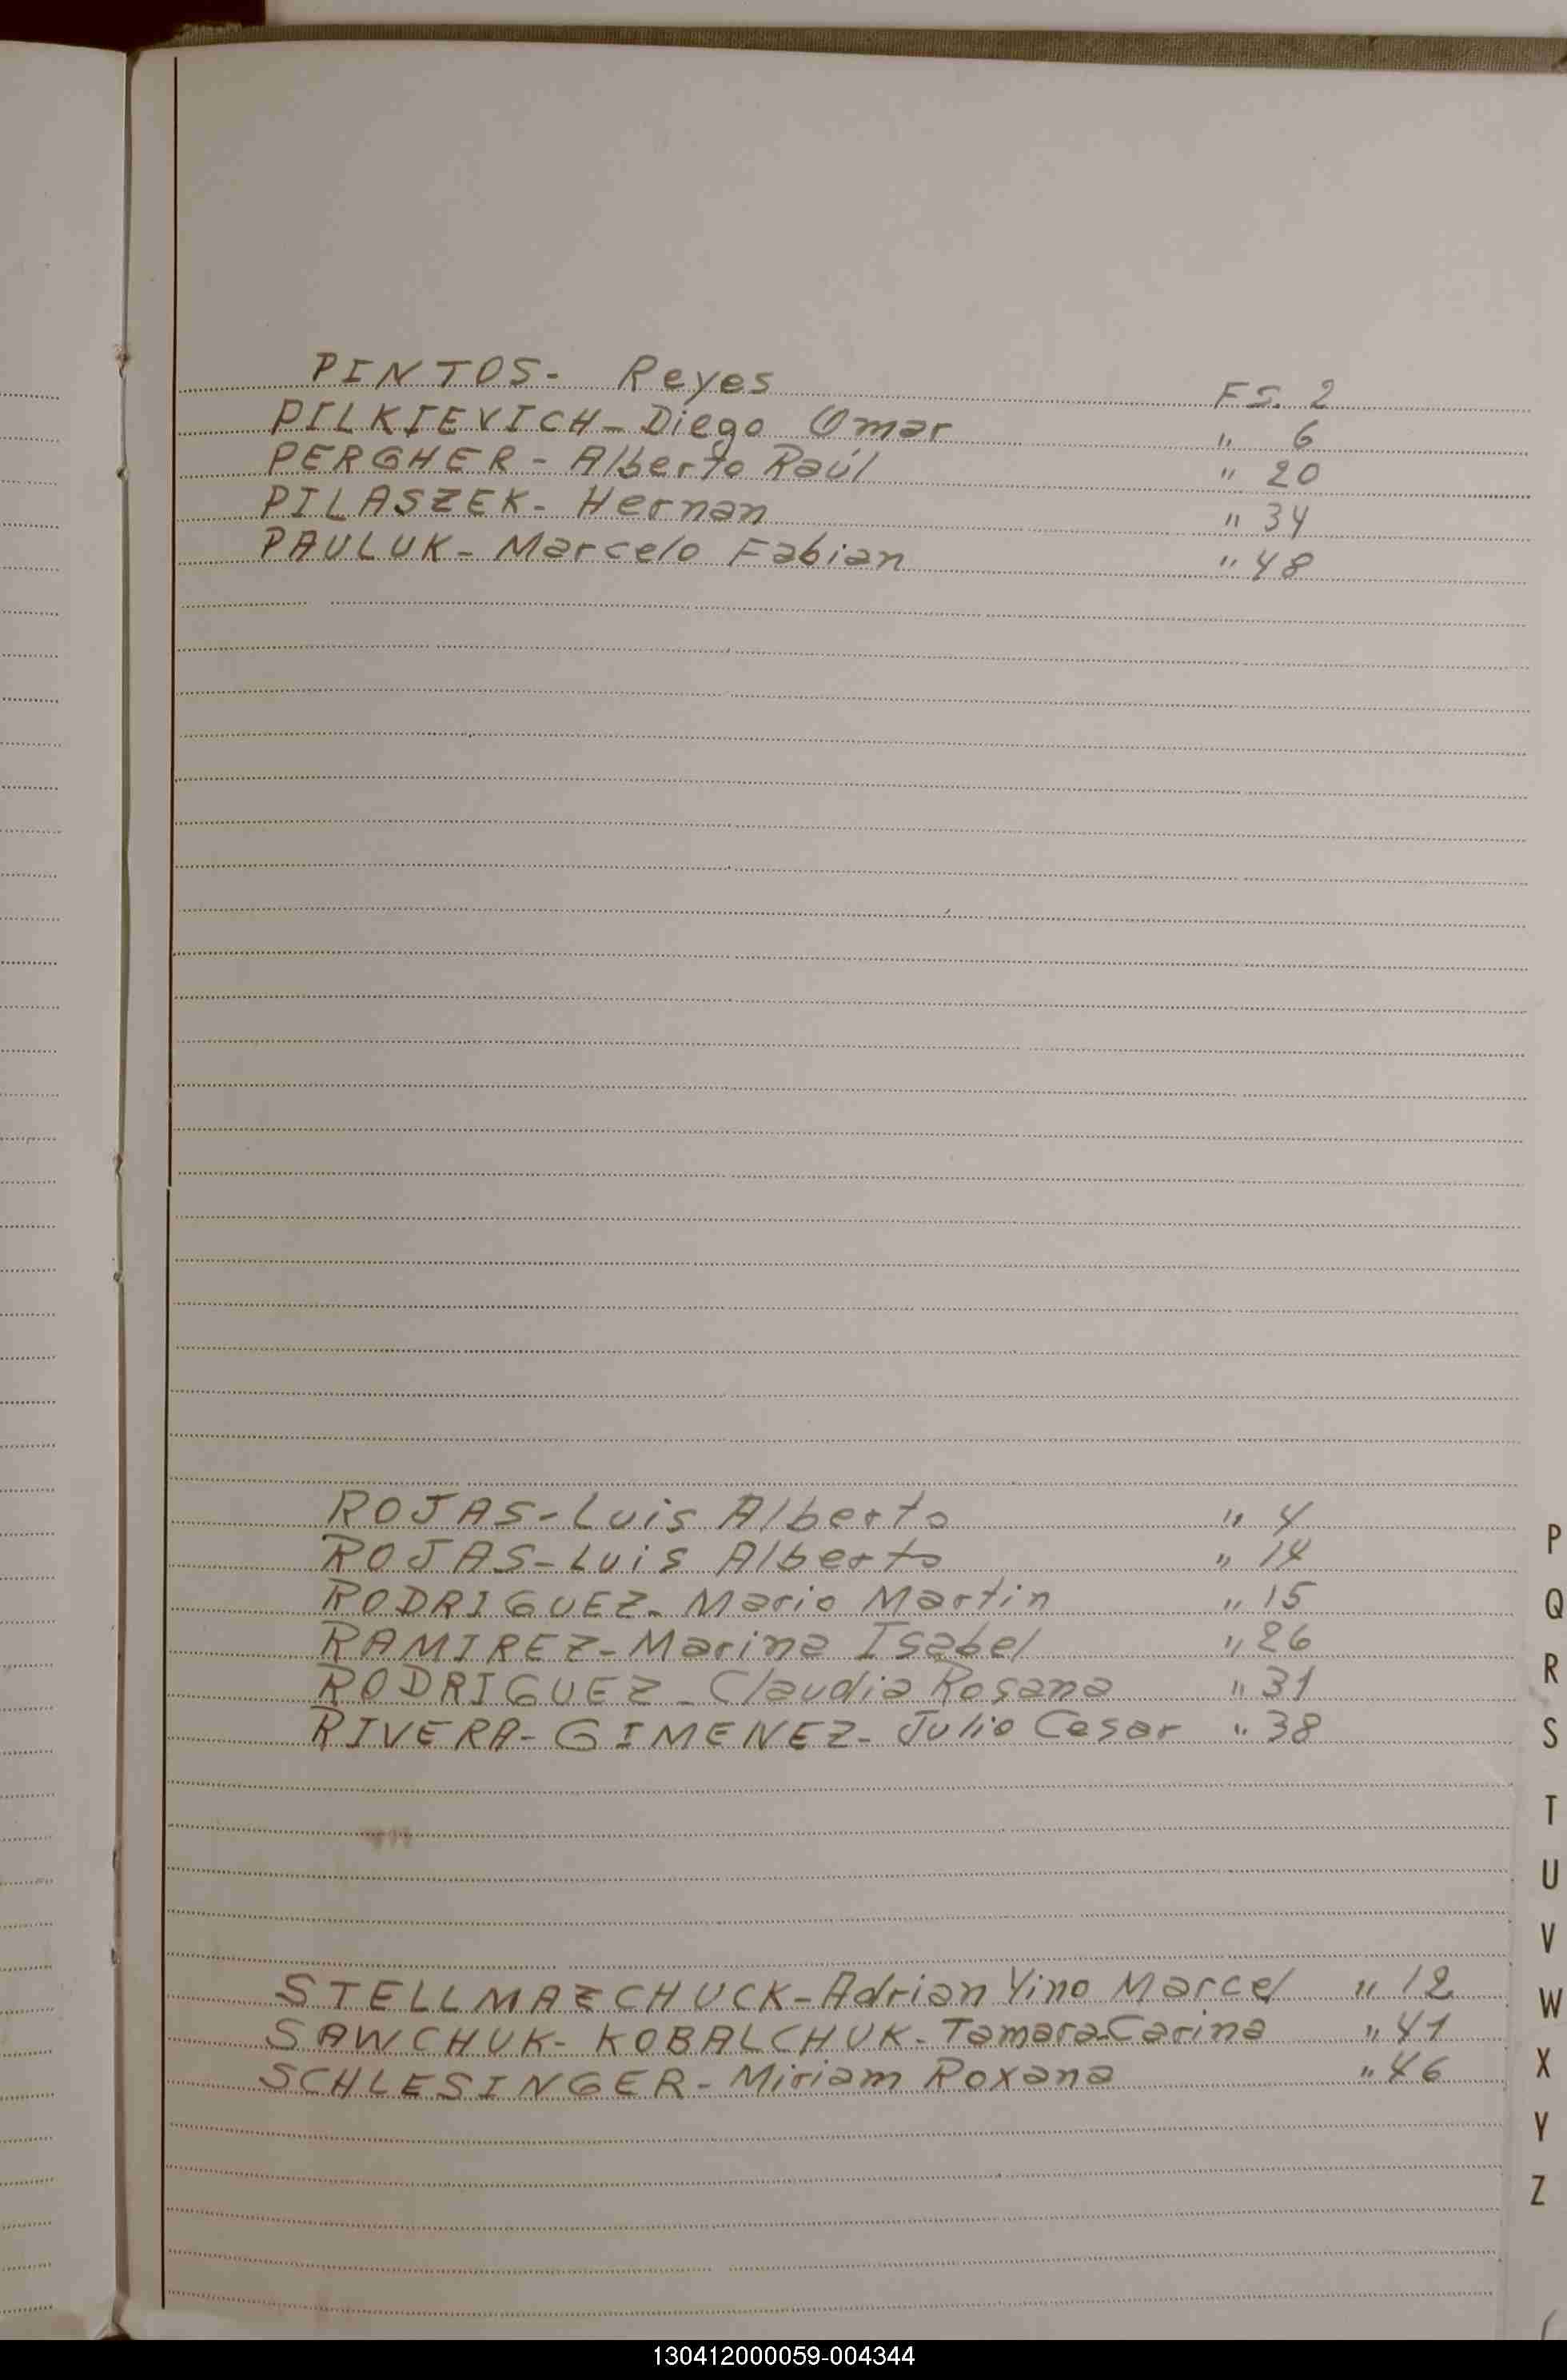 PINTOS- Reyes FS. 2
PILKIEVICH- Diego Omar " 6
PERGHER- Alberto Raúl " 20
PILASZEK- Hernan " 34
PAULUK- Marcelo Fabian " 48
ROJAS- Luis Alberto " 4
ROJAS- Luis Alberto " 14
RODRIGUEZ- Mario Martin " 15
RAMIREZ- Marina Isabel " 26
RODRIGUEZ- Claudia Rosana " 31
RIVERA- GIMENEZ- Julio Cesar " 38
STELLMAZCHUCK- Adrian Yino Marcel " 12
SAWCHUK- KOBALCHUK- Tamara-Carina " 41
SCHLESINGER- Miriam Roxana " 46
P
Q
R
S
T
U
V
W
X
Y
Z
130412000059-004344